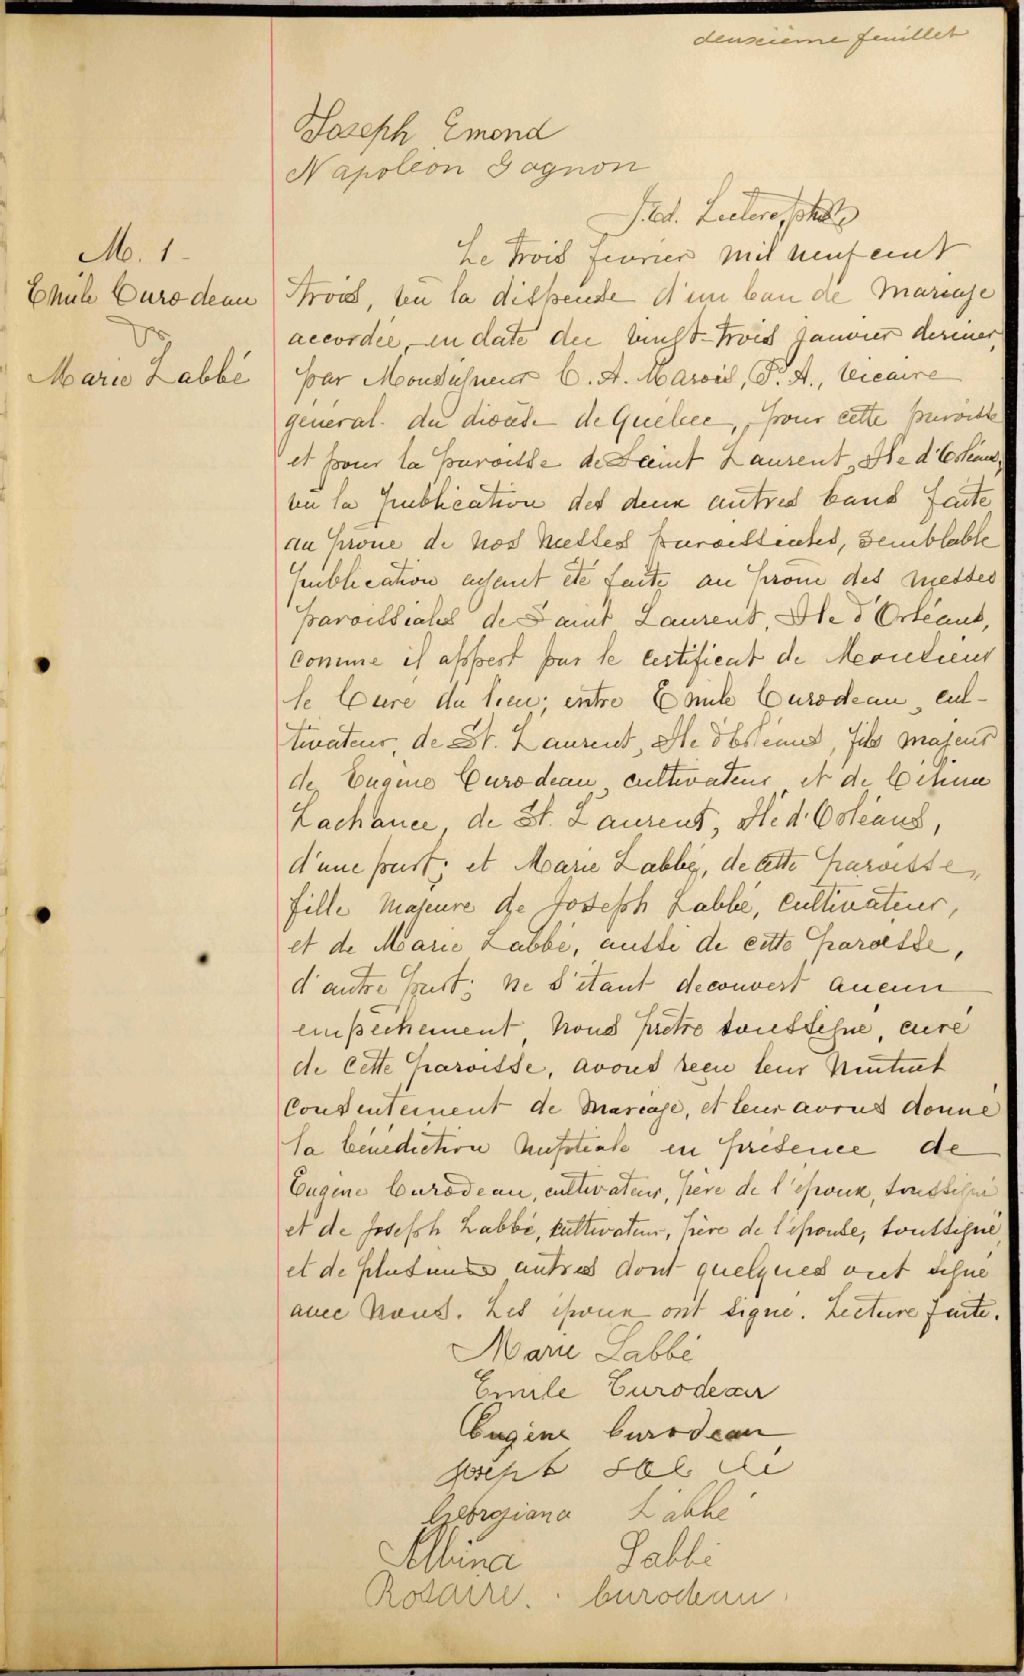 deuxième feuillet
Joseph Emond
Napoléon Gagnon
J. Ed. Leclerc, ptre
M. 1
Emile Curodeau
&
Marie Labbé
Le trois février mil neuf cent
trois, vû la dispense d'un ban de mariage
accordée, en date du vingt-trois janvier dernier,
par Monseigneur C. A. Marois, P. A., Vicaire
général du diocèse de Québec, pour cette paroisse
et pour la paroisse de Saint Laurent, Ile d'Orléans;
vu la publication des deux autres bans faite
au prône de nos messes paroissiales, semblable
publication ayant été faite au prône des messes
paroissiales de Saint Laurent, Ile d'Orléans,
comme il appert par le certificat de Monsieur
le Curé du lieu; entre Emile Curodeau, cul-
tivateur, de St. Laurent, Ile d'Orléans, fils majeur
de Eugène Curodeau, cultivateur, et de Célina
Lachance, de St. Laurent, Ile d'Orléans,
d'une part; et Marie Labbé, de cette paroisse,
fille majeure de Joseph Labbé, cultivateur,
et de Marie Labbé, aussi de cette paroisse,
d'autre part; ne s'étant decouvert aucun
empêchement, nous prêtre soussigné, curé
de cette paroisse, avons reçu leur mutuel
consentement de mariage, et leur avons donné
la bénédiction nuptiale en présence de
Eugène Curodeau, cultivateur, père de l'époux, soussigné
et de Joseph Labbé, cultivateur, père de l'épouse, soussigné,
et de plusieurs autres dont quelques ont signé
avec nous. Les époux ont signé. Lecture faite.
Marie Labbé
Emile Curodeau
Eugène Curodeau
Joseph Labbé
Georgiana Labbé
Albina Labbé
Rosaire Curodeau